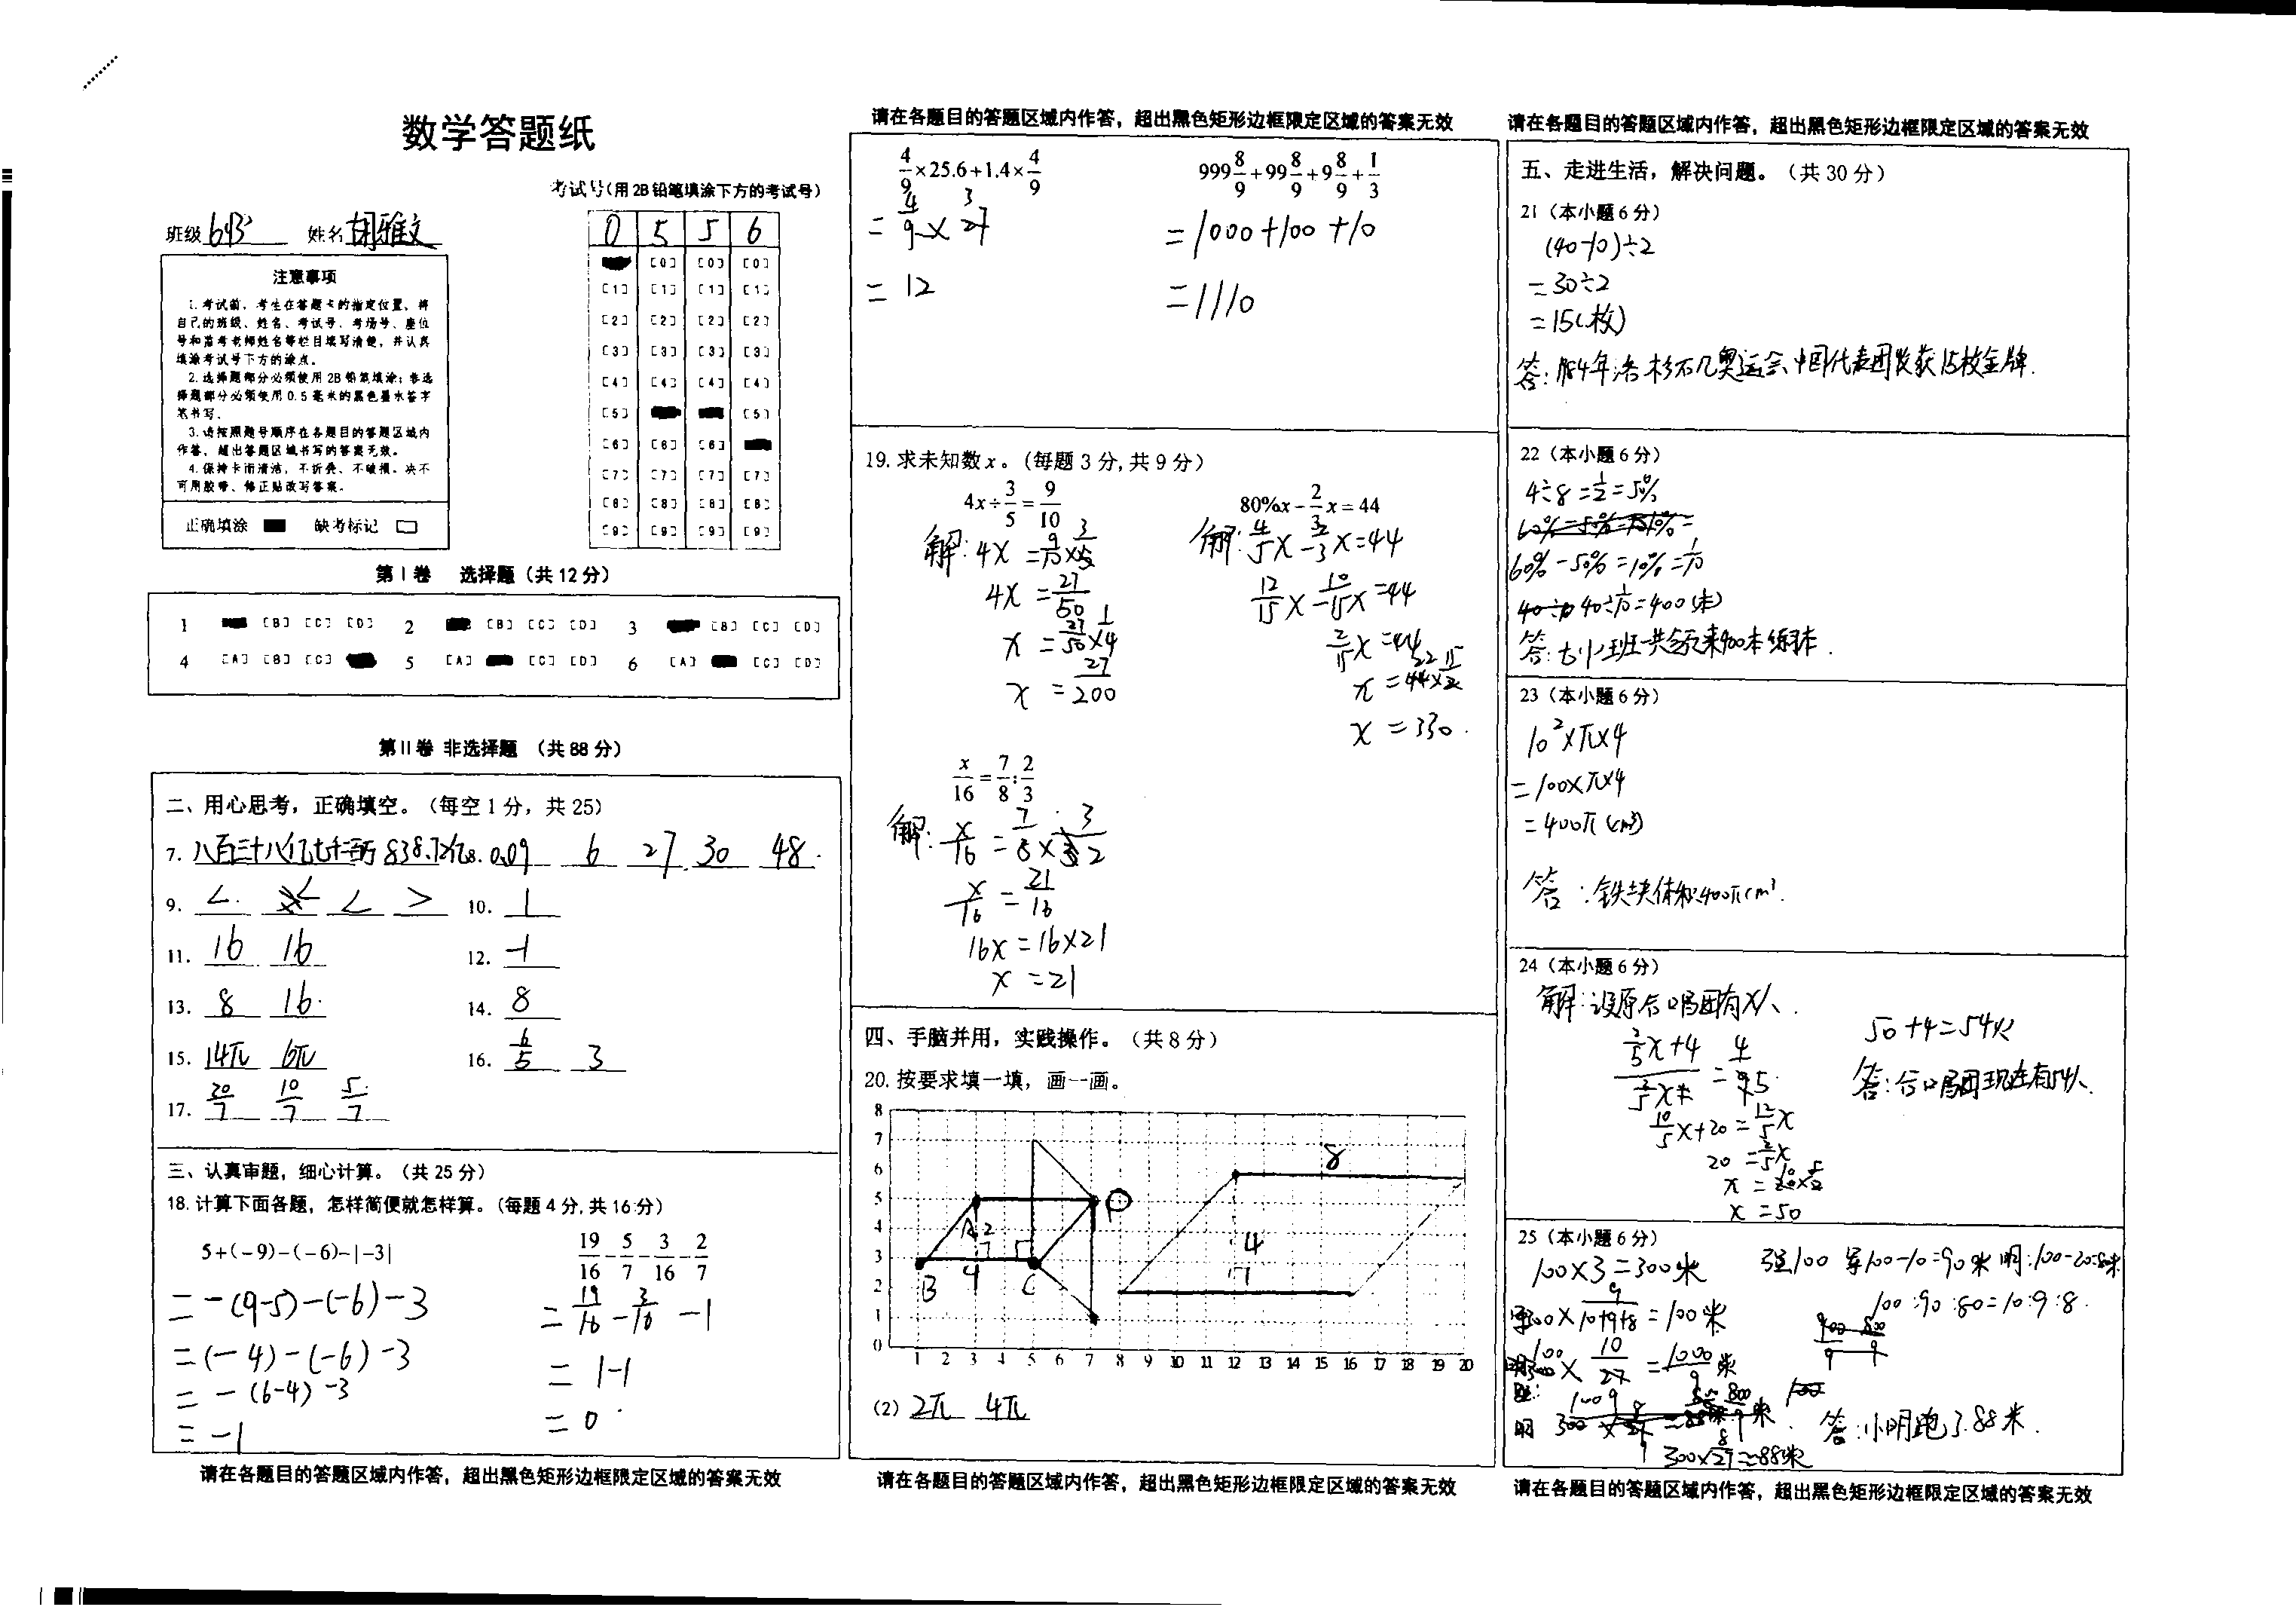 数学答题纸
考试号(用2B铅笔填涂下方的考试号)
班级 姓名
0 5 5 6
注意事项
1.考试前,考生在答题卡的指定位置,将
自己的班级、姓名、考试号、考场号、座位
号和监考老师姓名等栏目填写清楚,并认真
填涂考试号下方的涂点。
2.选择题部分必须使用2B铅笔填涂;非选
择题部分必须使用0.5毫米的黑色墨水签字
笔书写。
3.请按照题号顺序在各题目的答题区域内
作答,超出答题区域书写的答案无效。
4.保持卡面清洁,不折叠、不破损。决不
可用胶带、修正贴改写答案。
正确填涂 缺考标记
[0] [0] [0]
[1] [1] [1] [1]
[2] [2] [2] [2]
[3] [3] [3] [3]
[4] [4] [4] [4]
[5] [5]
[6] [6] [6]
[7] [7] [7] [7]
[8] [8] [8] [8]
[9] [9] [9] [9]
第I卷 选择题(共12分)
1 [B] [C] [D] 2 [B] [C] [D] 3 [B] [C] [D]
4 [A] [B] [C] 5 [A] [C] [D] 6 [A] [C] [D]
第II卷 非选择题 (共88分)
二、用心思考,正确填空。(每空1分,共25)
7. 8. 0.09 6 27 30 48
9. < < < > 10. 1
11. 16 16 12. -1
13. 8 16 14. 8
15. 14π 6π 16. 6/5 3
17. 20/7 10/7 5/7
三、认真审题,细心计算。(共25分)
18.计算下面各题,怎样简便就怎样算。(每题4分,共16分)
5+(-9)-(-6)-|-3| 19/16-5/7-3/16-2/7
=-(9-5)-(-6)-3 =19/16-3/16-1
=(-4)-(-6)-3 =1-1
=-(6-4)-3 =0
=-1
请在各题目的答题区域内作答,超出黑色矩形边框限定区域的答案无效
请在各题目的答题区域内作答,超出黑色矩形边框限定区域的答案无效
4/9×25.6+1.4×4/9 999 8/9+99 8/9+9 8/9+1/3
=4/9×27 =1000+100+10
=12 =1110
19.求未知数x。(每题3分,共9分)
4x÷3/5=9/10 80%x-2/3x=44
解:4x=9/10×3/5 解:4/5x-2/3x=44
4x=27/50 12/15x-10/15x=44
x=27/50×1/4 2/15x=44
x=27/200 x=44×15/2
x=330.
x/16=7/8:2/3
解:x/16=7/8×3/2
x/16=21/16
16x=16×21
x=21
四、手脑并用,实践操作。(共8分)
20.按要求填一填,画一画。
8
7
6 8
5 D
4 A
3 4
2 B 4 C
1
0
1 2 3 4 5 6 7 8 9 10 11 12 13 14 15 16 17 18 19 20
(2) 2π 4π
请在各题目的答题区域内作答,超出黑色矩形边框限定区域的答案无效
请在各题目的答题区域内作答,超出黑色矩形边框限定区域的答案无效
五、走进生活,解决问题。(共30分)
21(本小题6分)
(40-10)÷2
=30÷2
=15(枚)
答:1984年洛杉矶奥运会中国代表团收获15枚金牌.
22(本小题6分)
4÷8=1/2=50%
60%-50%=10%=1/10
40÷1/10=400(本)
答:六(1)班一共领来400本练习本.
23(本小题6分)
10²×π×4
=100×π×4
=400π(cm³)
答:铁块体积400πcm³.
24(本小题6分)
解:设原合唱团有x人.
10/5x+20=12/5x
20=2/5x
x=20×5/2
x=50
50+4=54人
答:合唱团现在有54人.
25(本小题6分)
100×3=300米 强100 军100-10=90米 明:100-20=80米
300×9/10+9+8=100米 100:90:80=10:9:8.
×10/27=1000/9米
300×8/27≈88米
答:小明跑了88米.
请在各题目的答题区域内作答,超出黑色矩形边框限定区域的答案无效